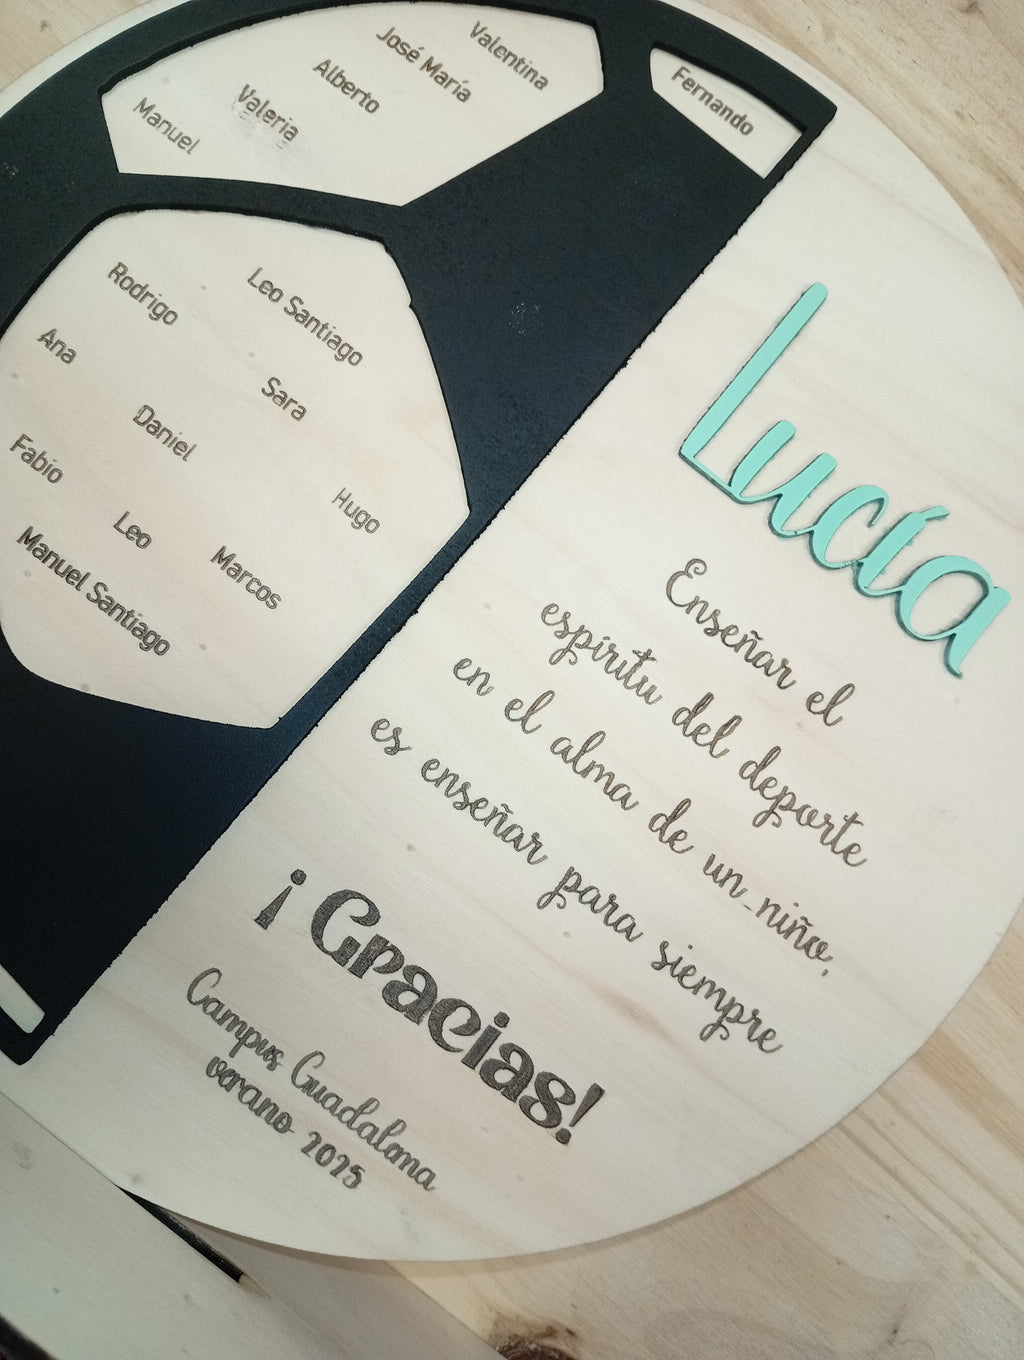 Valentina
José María
Alberto
Valeria
Manuel
Fernando
Rodrigo
Leo Santiago
Ana
Sara
Daniel
Fabio
Hugo
Leo
Marcos
Manuel Santiago
Lucía
Enseñar el
espíritu del deporte
en el alma de un niño,
es enseñar para siempre
¡Gracias!
Campus Guadaloma
verano 2025